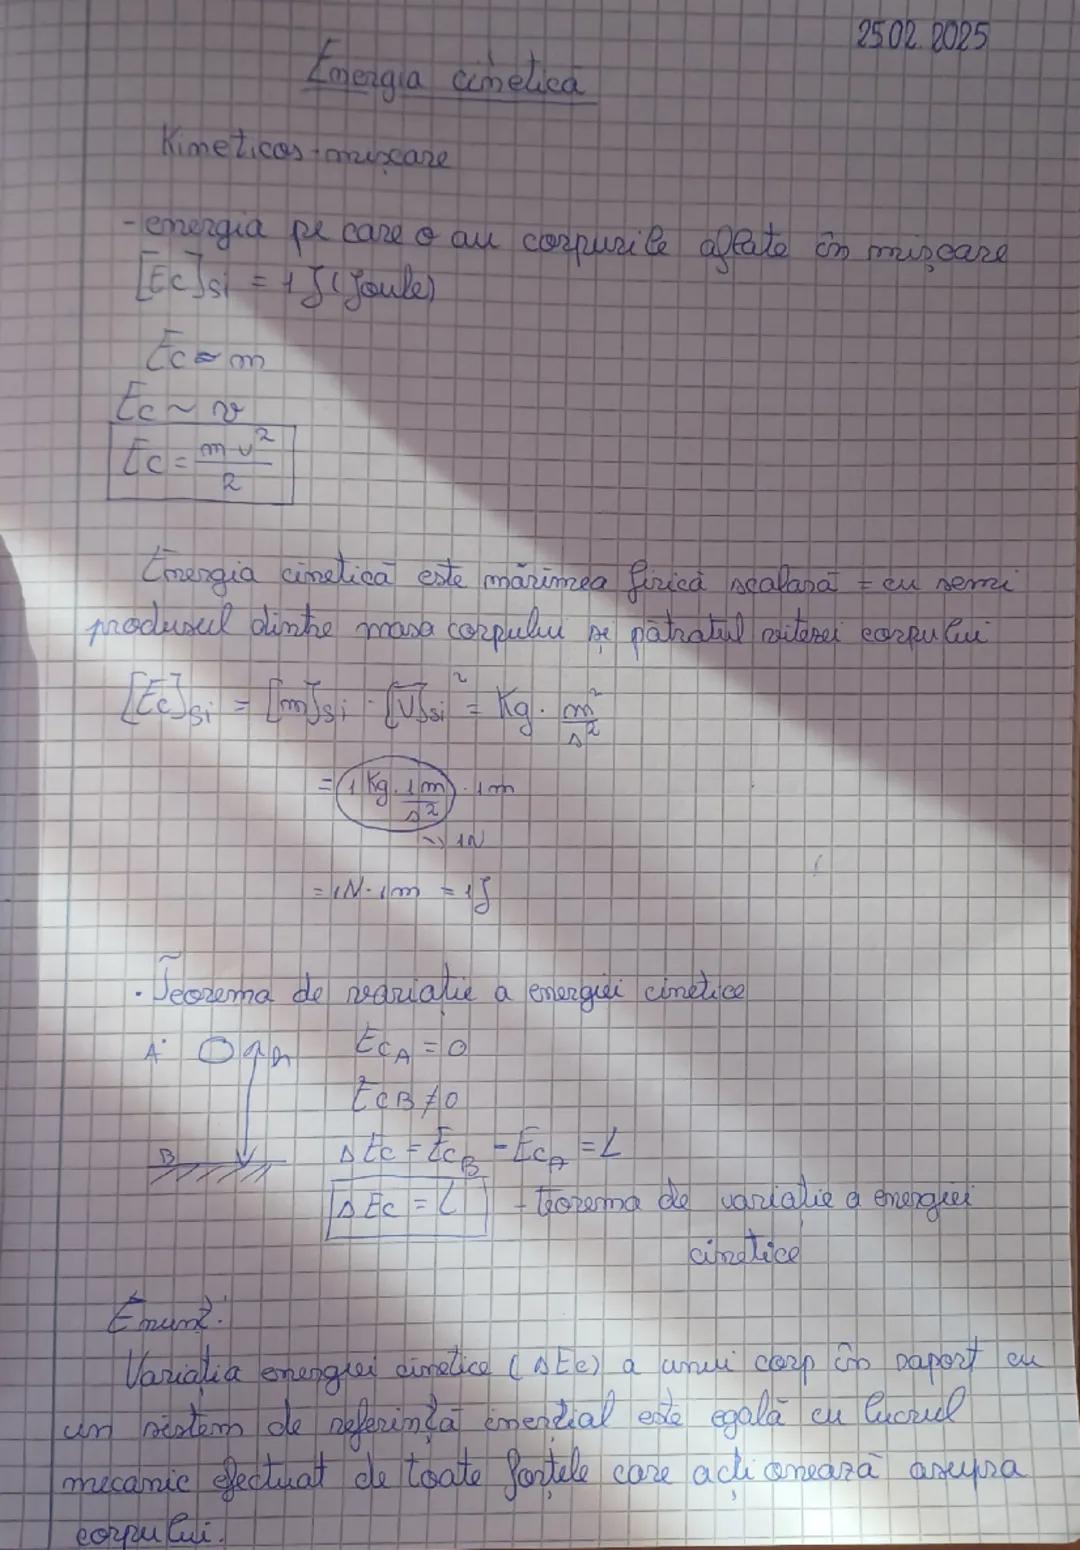 25.02.2025
Energia cinetică
Kineticos-mișcare
-energia pe care o au corpurile aflate în mișcare
[Ec]si = 1J (Joule)
Ec ~ m
Ec ~ v
Ec = m·v²/2
Energia cinetică este mărimea fizică scalară = cu semi
produsul dintre masa corpului și pătratul vitezei corpului
[Ec]si = [m]si · [v]si² = Kg · m²/s²
= 1Kg · 1m/s² · 1m
→ 1N
= 1N · 1m = 1J
· Teorema de variație a energiei cinetice
A· EcA = 0
EcB ≠ 0
B ΔEc = EcB - EcA = L
ΔEc = L - teorema de variație a energiei
cinetice
Enunț:
Variația energiei cinetice (ΔEc) a unui corp în raport cu
un sistem de referință inerțial este egală cu lucrul
mecanic efectuat de toate forțele care acționează asupra
corpului.